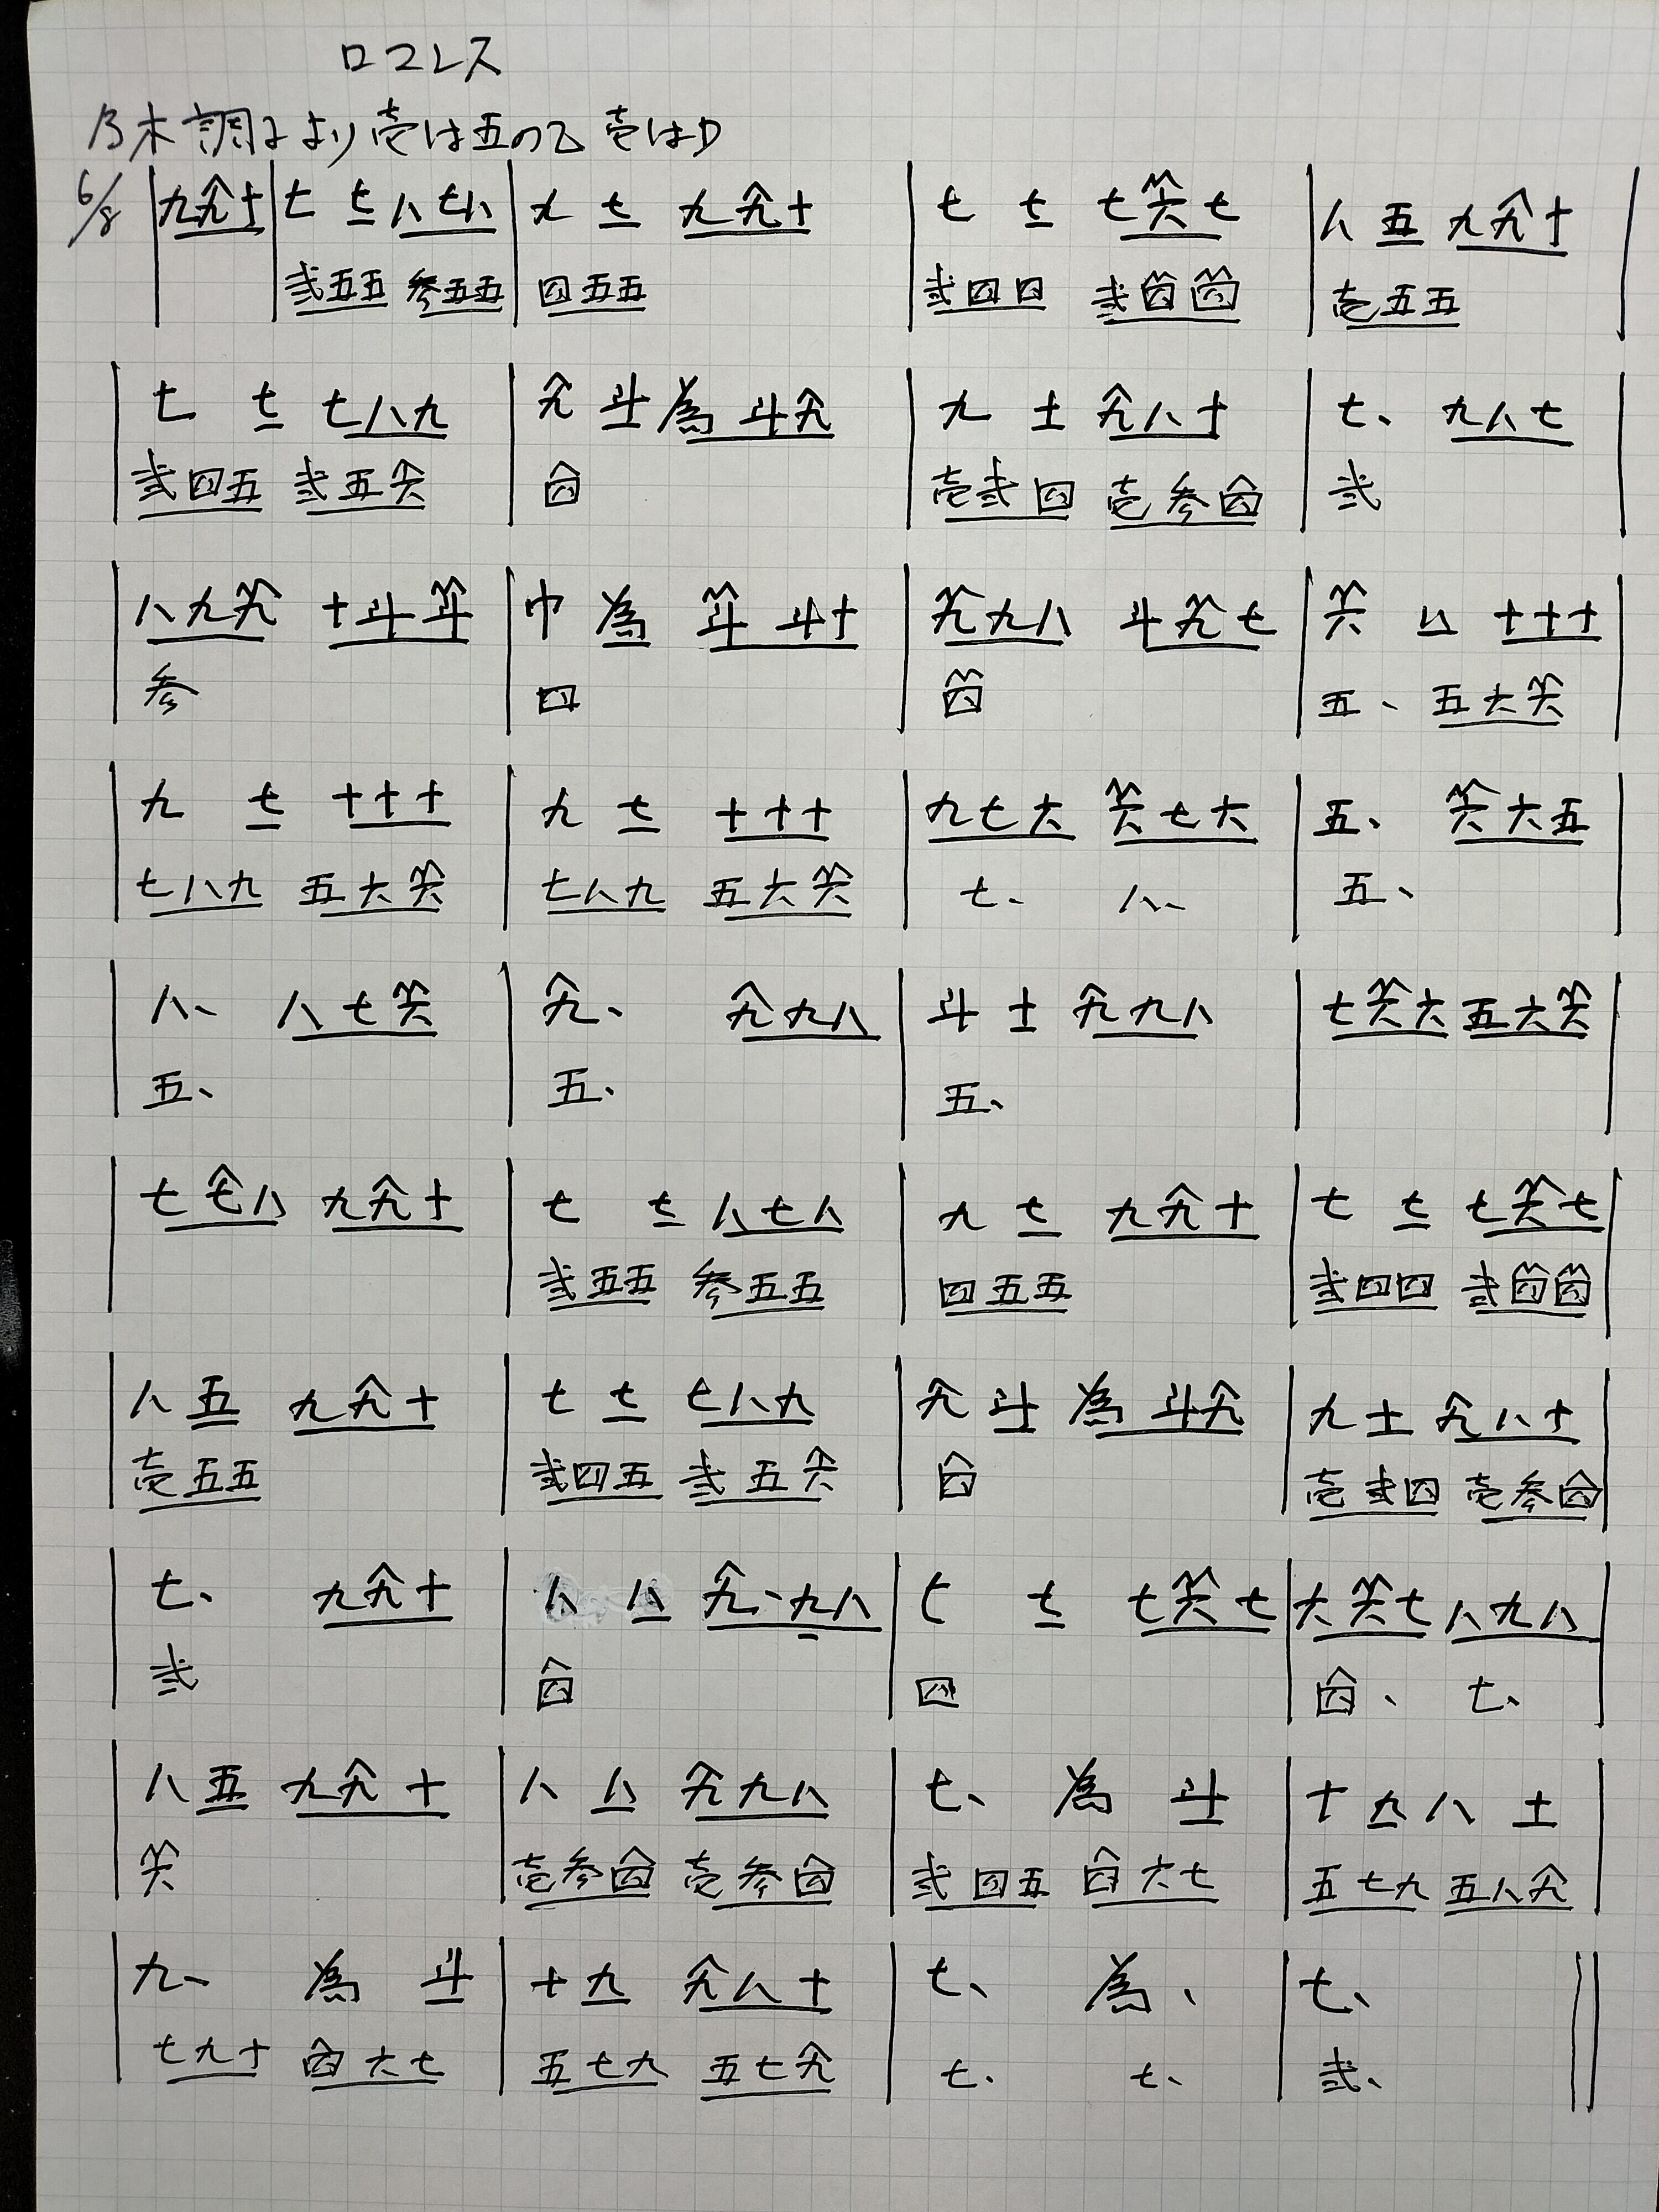 ロコレス
乃木調子より 壱は五の乙 壱はD
6/8 | 九九十 | 七 七 八七八 | 九 七 九九十 | 七 七 七六七 | 八 五 九九十 |
弐五五 参五五 | 四五五 | 弐四四 弐四四 | 壱五五
| 七 七 七八九 | 九 斗 為 斗九 | 九 十 九八十 | 七、 九八七 |
弐四五 弐五六 | 四 | 壱弐四 壱参四 | 弐
| 八九九 十斗斗 | 巾 為 斗 斗十 | 九九八 斗九七 | 六 八 十十十 |
参 | 四 | 四 | 五、 五六六
| 九 七 十十十 | 九 七 十十十 | 九七六 六七六 | 五、 六六五 |
七八九 五六六 | 七八九 五六六 | 七、 八、 | 五、
| 八、 八七六 | 九、 九九八 | 斗 十 九九八 | 七六六 五六六 |
五、 | 五、 | 五、 |
| 七七八 九九十 | 七 七 八七八 | 九 七 九九十 | 七 七 七六七 |
| 弐五五 参五五 | 四五五 | 弐四四 弐四四
| 八 五 九九十 | 七 七 七八九 | 九 斗 為 斗九 | 九 十 九八十 |
壱五五 | 弐四五 弐五六 | 四 | 壱弐四 壱参四
| 七、 九九十 | 八 八 九、九八 | 七 七 七六七 | 六六七 八九八 |
弐 | 四 | 四 | 四、 七、
| 八 五 九九十 | 八 八 九九八 | 七、 為 斗 | 十 九 八 十 |
六 | 壱参四 壱参四 | 弐四五 四六七 | 五七九 五八九
| 九、 為 斗 | 十 九 九八十 | 七、 為、 | 七、 ||
七九十 四六七 | 五七九 五七九 | 七、 七、 | 弐、